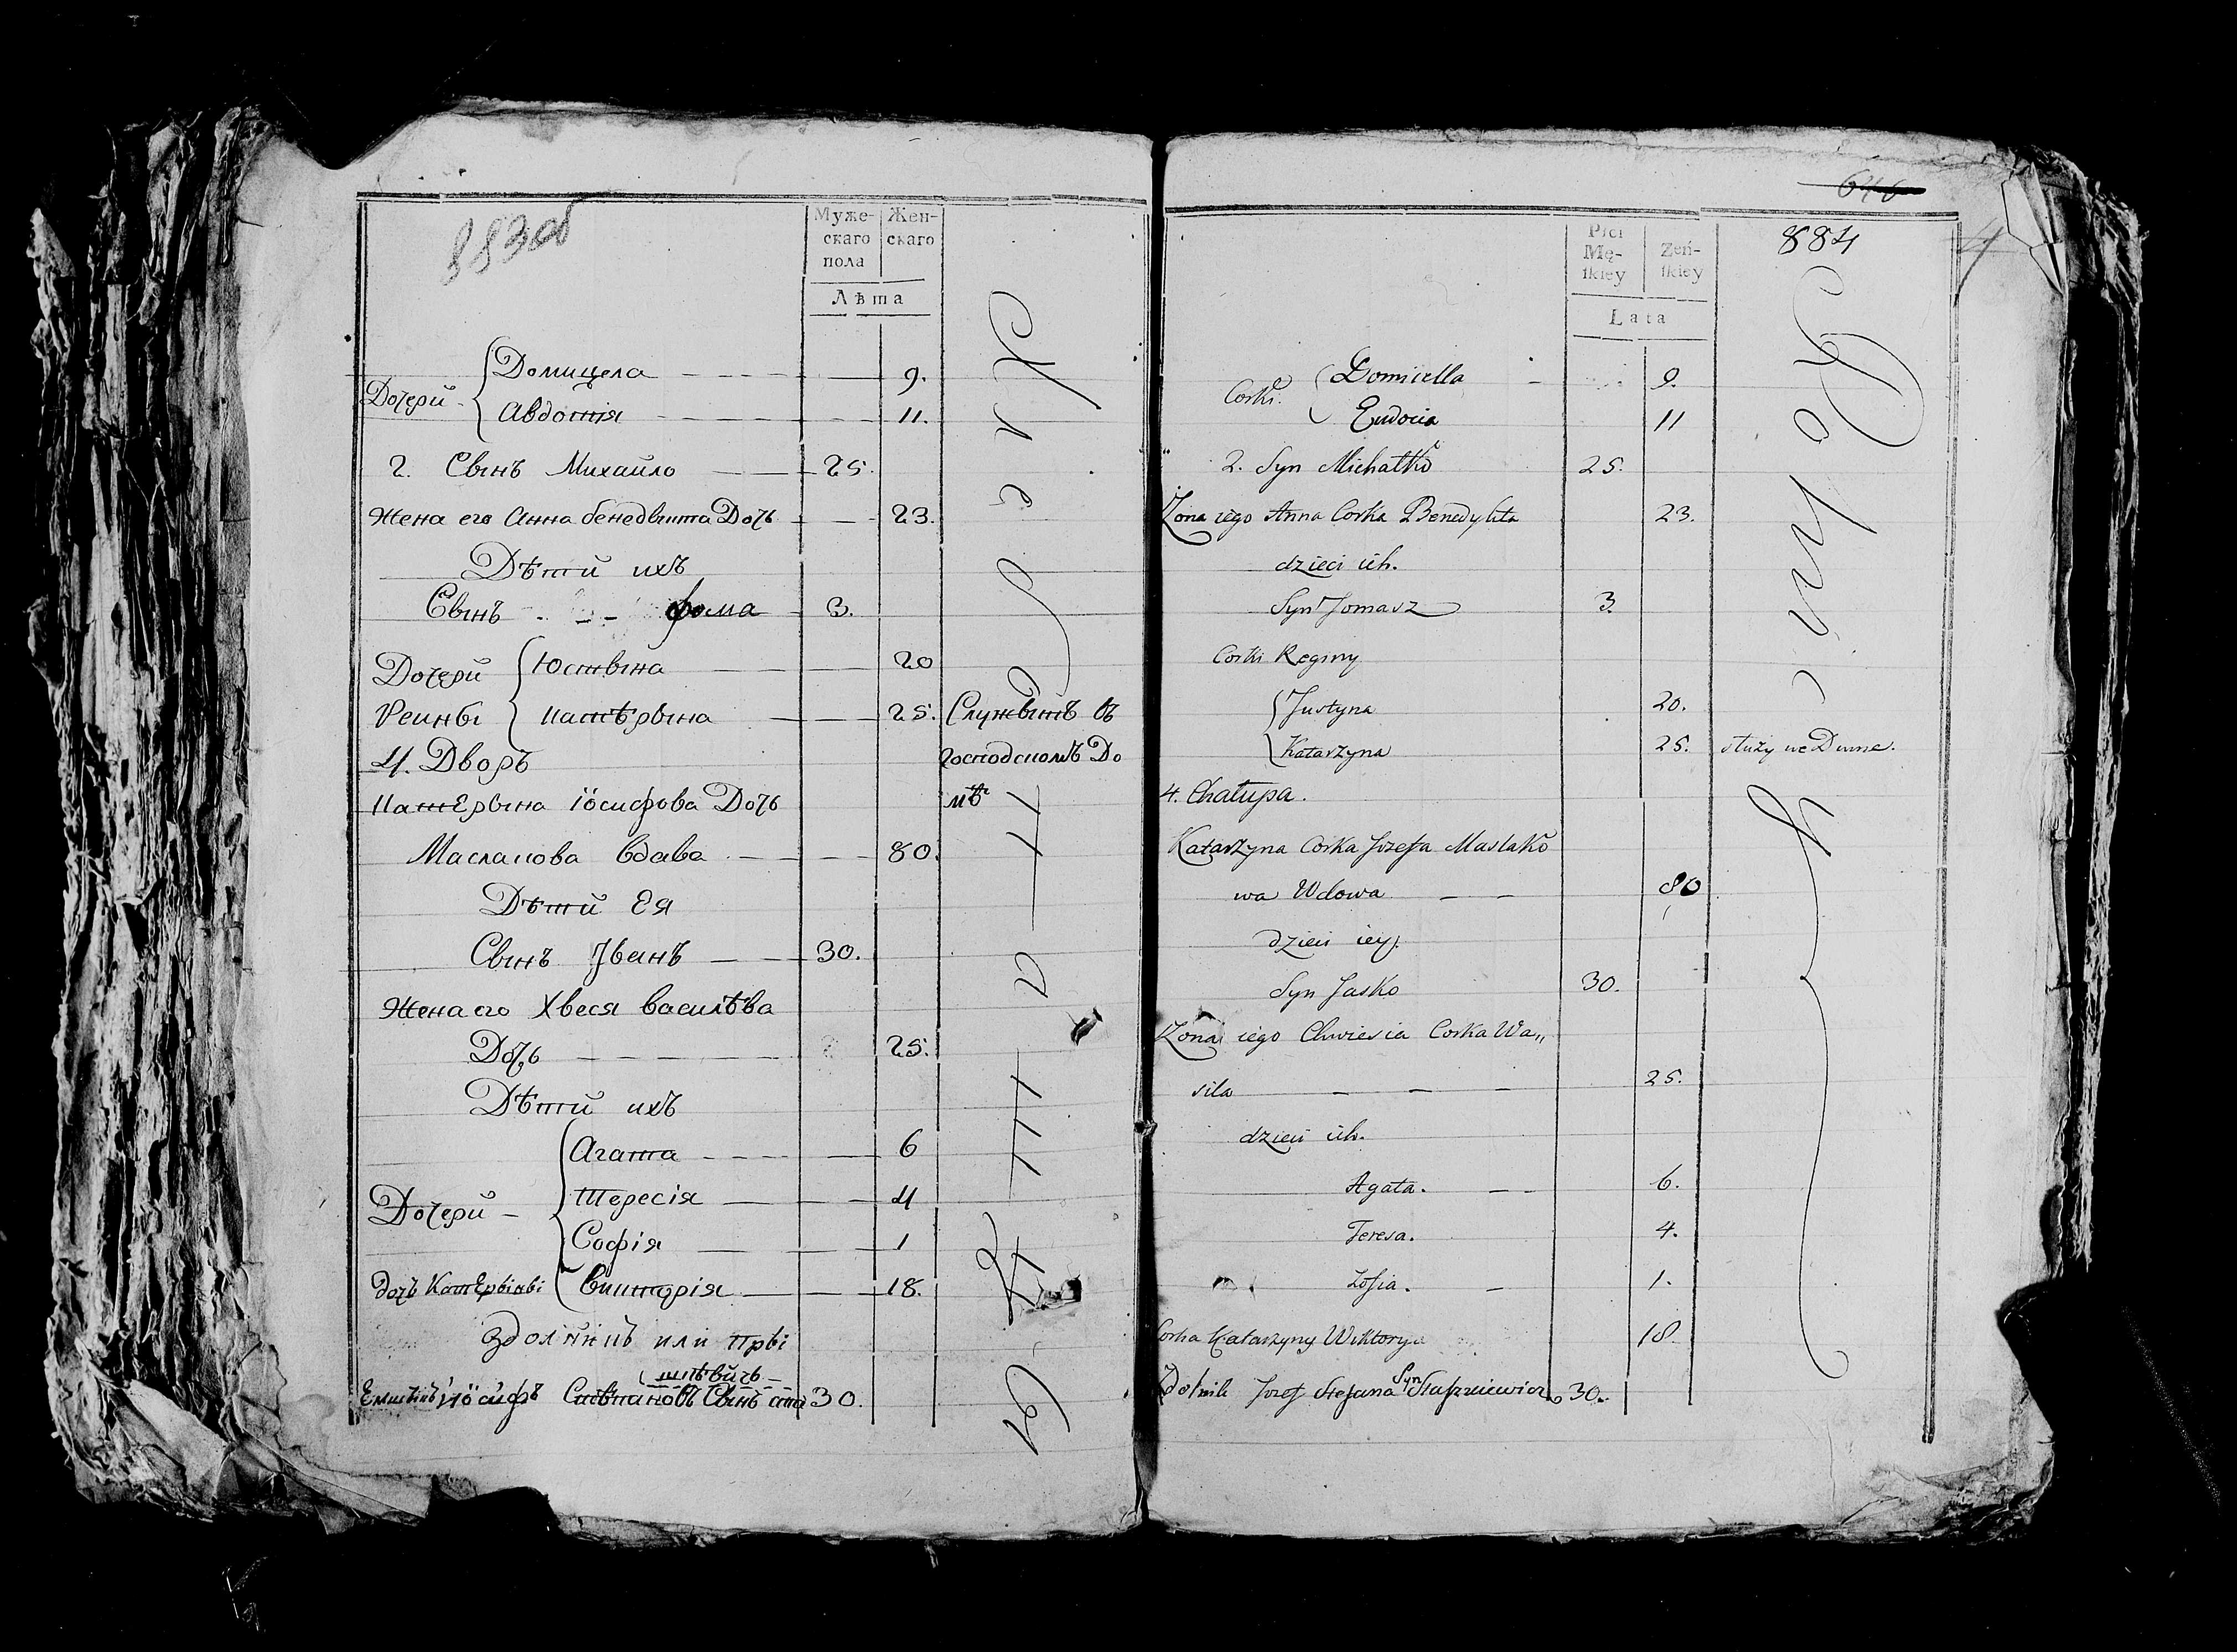 883об
Муже- Жен-
скаго скаго
пола
Лѣта
Домицела 9.
Дочери
Авдотія 11.
2. Сынъ Михайло 25.
Жена его Анна бенедыкта Дочь 23.
Дѣти ихъ
Сынъ фома 3.
Дочери Юстына 20
Реины катѣрына 25. Служытъ въ
4. Дворъ господскомъ До
КатЕрына іосифова Дочь мѣ
Маслакова вдава 80.
Дѣти Ея
Сынъ Іванъ 30.
Жена его Хвеся василѣва
Дочь 25.
Дѣти ихъ
Агата 6
Дочери Тересія 4
Софія 1
дочь КатЕрыны викторія 18.
здолникъ или пры
шкѣвичъ
іосифъ Сынъ ста 30.
646
884
Płci
Mę- Zeń-
ſkiey ſkiey
Lata
Domicella 9.
Corki
Eudocia 11
2. Syn Michałko 25.
Zona iego Anna Corka Benedykta 23.
dzieci ich.
Syn Tomasz 3.
Corki Reginy
Justyna 20.
Katarzyna 25. służy we Dworze.
4. Chałupa.
Katarzyna Corka Jozefa Maslako
wa Wdowa 80
dzieci iey.
Syn Jasko 30.
Zona iego Chwiesia Corka Wa„
sila 25.
dzieci ich.
Agata. 6.
Teresa. 4.
Zofia. 1.
Corka Katarzyny Wiktorya 18.
Syn
Zdolnik Jozef Stefana Staszkiewicz 30.